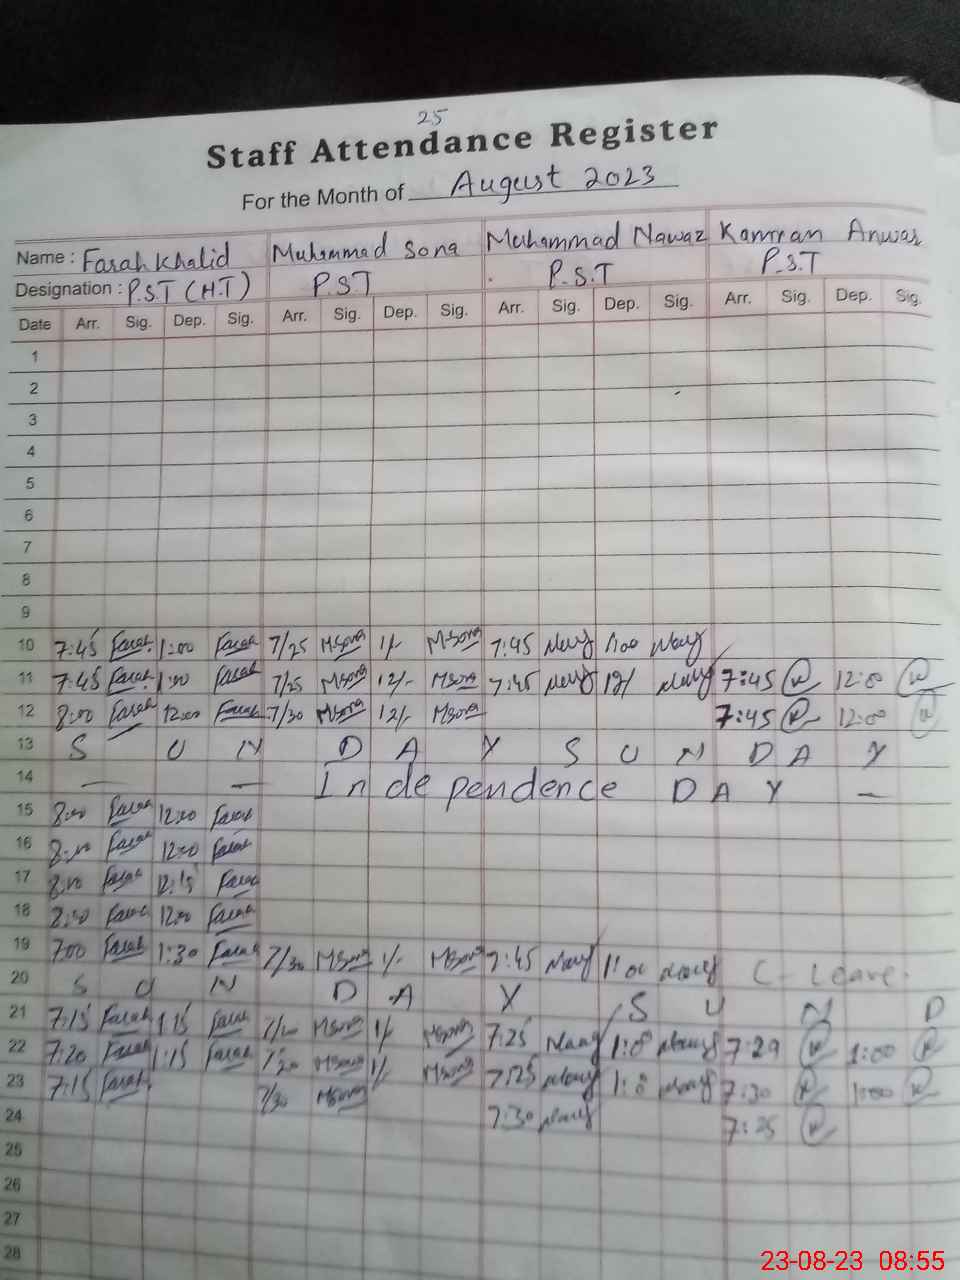 25
Staff Attendance Register
For the Month of August 2023
Name : Farah Khalid Muhammad Sona Muhammad Nawaz Kamran Anwar
Designation : P.S.T (H.T) P.S.T P.S.T P.S.T
Date Arr. Sig. Dep. Sig. Arr. Sig. Dep. Sig. Arr. Sig. Dep. Sig. Arr. Sig. Dep. Sig.
1
2
3
4
5
6
7
8
9
10 7:45 Farah 1:00 Farah 7/25 MSona 1/- MSona 7:45 Nawaz 1:00 Nawaz
11 7:45 Farah 1:00 Farah 7/25 MSona 12/- MSona 7:45 Nawaz 12/ Nawaz 7:45 12:00
12 8:00 Farah 12:00 Farah 7/30 MSona 12/- MSona 7:45 12:00
13 S U N D A Y S U N D A Y
14 — — Independence DAY —
15 8:00 Farah 12:00 Farah
16 8:00 Farah 12:00 Farah
17 8:00 Farah 12:15 Farah
18 8:00 Farah 12:00 Farah
19 7:00 Farah 1:30 Farah 7/30 MSona 1/- MSona 7:45 Nawaz 1:00 Nawaz C - Leave
20 S U N D A Y S U N D
21 7:15 Farah 1:15 Farah MSona 1/- MSona 7:25 Nawaz 1:0 Nawaz 7:29 1:00
22 7:20 Farah 1:15 Farah MSona 1/- MSona 7:25 Nawaz 1:0 Nawaz 7:30 1:00
23 7:15 Farah 7/30 MSona 7:30 Nawaz 7:25
24
25
26
27
28
23-08-23 08:55